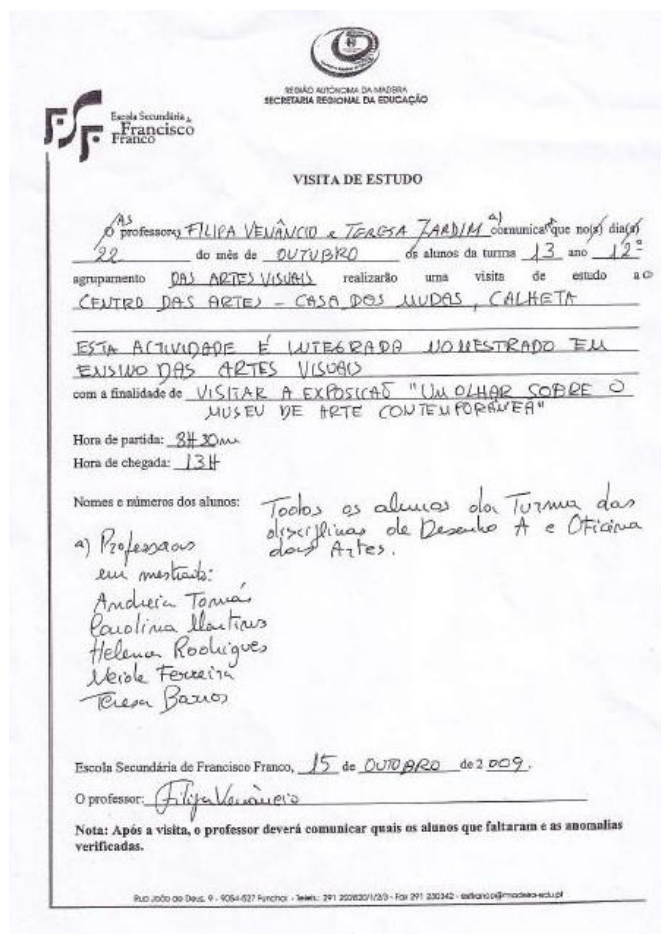 REGIÃO AUTÓNOMA DA MADEIRA
SECRETARIA REGIONAL DA EDUCAÇÃO
Escola Secundária de
Francisco
Franco
VISITA DE ESTUDO
As
O professores FILIPA VENÂNCIO e TERESA JARDIM a) comunica que no(s) dia(s)
22 do mês de OUTUBRO os alunos da turma 13 ano 12º
agrupamento DAS ARTES VISUAIS realizarão uma visita de estudo ao
CENTRO DAS ARTES - CASA DAS MUDAS, CALHETA
ESTA ACTIVIDADE É INTEGRADA NO MESTRADO EM
ENSINO DAS ARTES VISUAIS
com a finalidade de VISITAR A EXPOSIÇÃO "UM OLHAR SOBRE O
MUSEU DE ARTE CONTEMPORÂNEA"
Hora de partida: 8H 30m
Hora de chegada: 13H
Nomes e números dos alunos: Todos os alunos da Turma das
disciplinas de Desenho A e Oficina
das Artes.
a) Professores
em mestrado:
Andreia Tomás
Carolina Martins
Helena Rodrigues
Neide Ferreira
Teresa Barros
Escola Secundária de Francisco Franco, 15 de OUTUBRO de 2009.
O professor: Filipa Venâncio
Nota: Após a visita, o professor deverá comunicar quais os alunos que faltaram e as anomalias
verificadas.
Rua João de Deus, 9 - 9054-527 Funchal - Telefs.: 291 202820/1/2/3 - Fax 291 230342 - esffranco@madeira-edu.pt